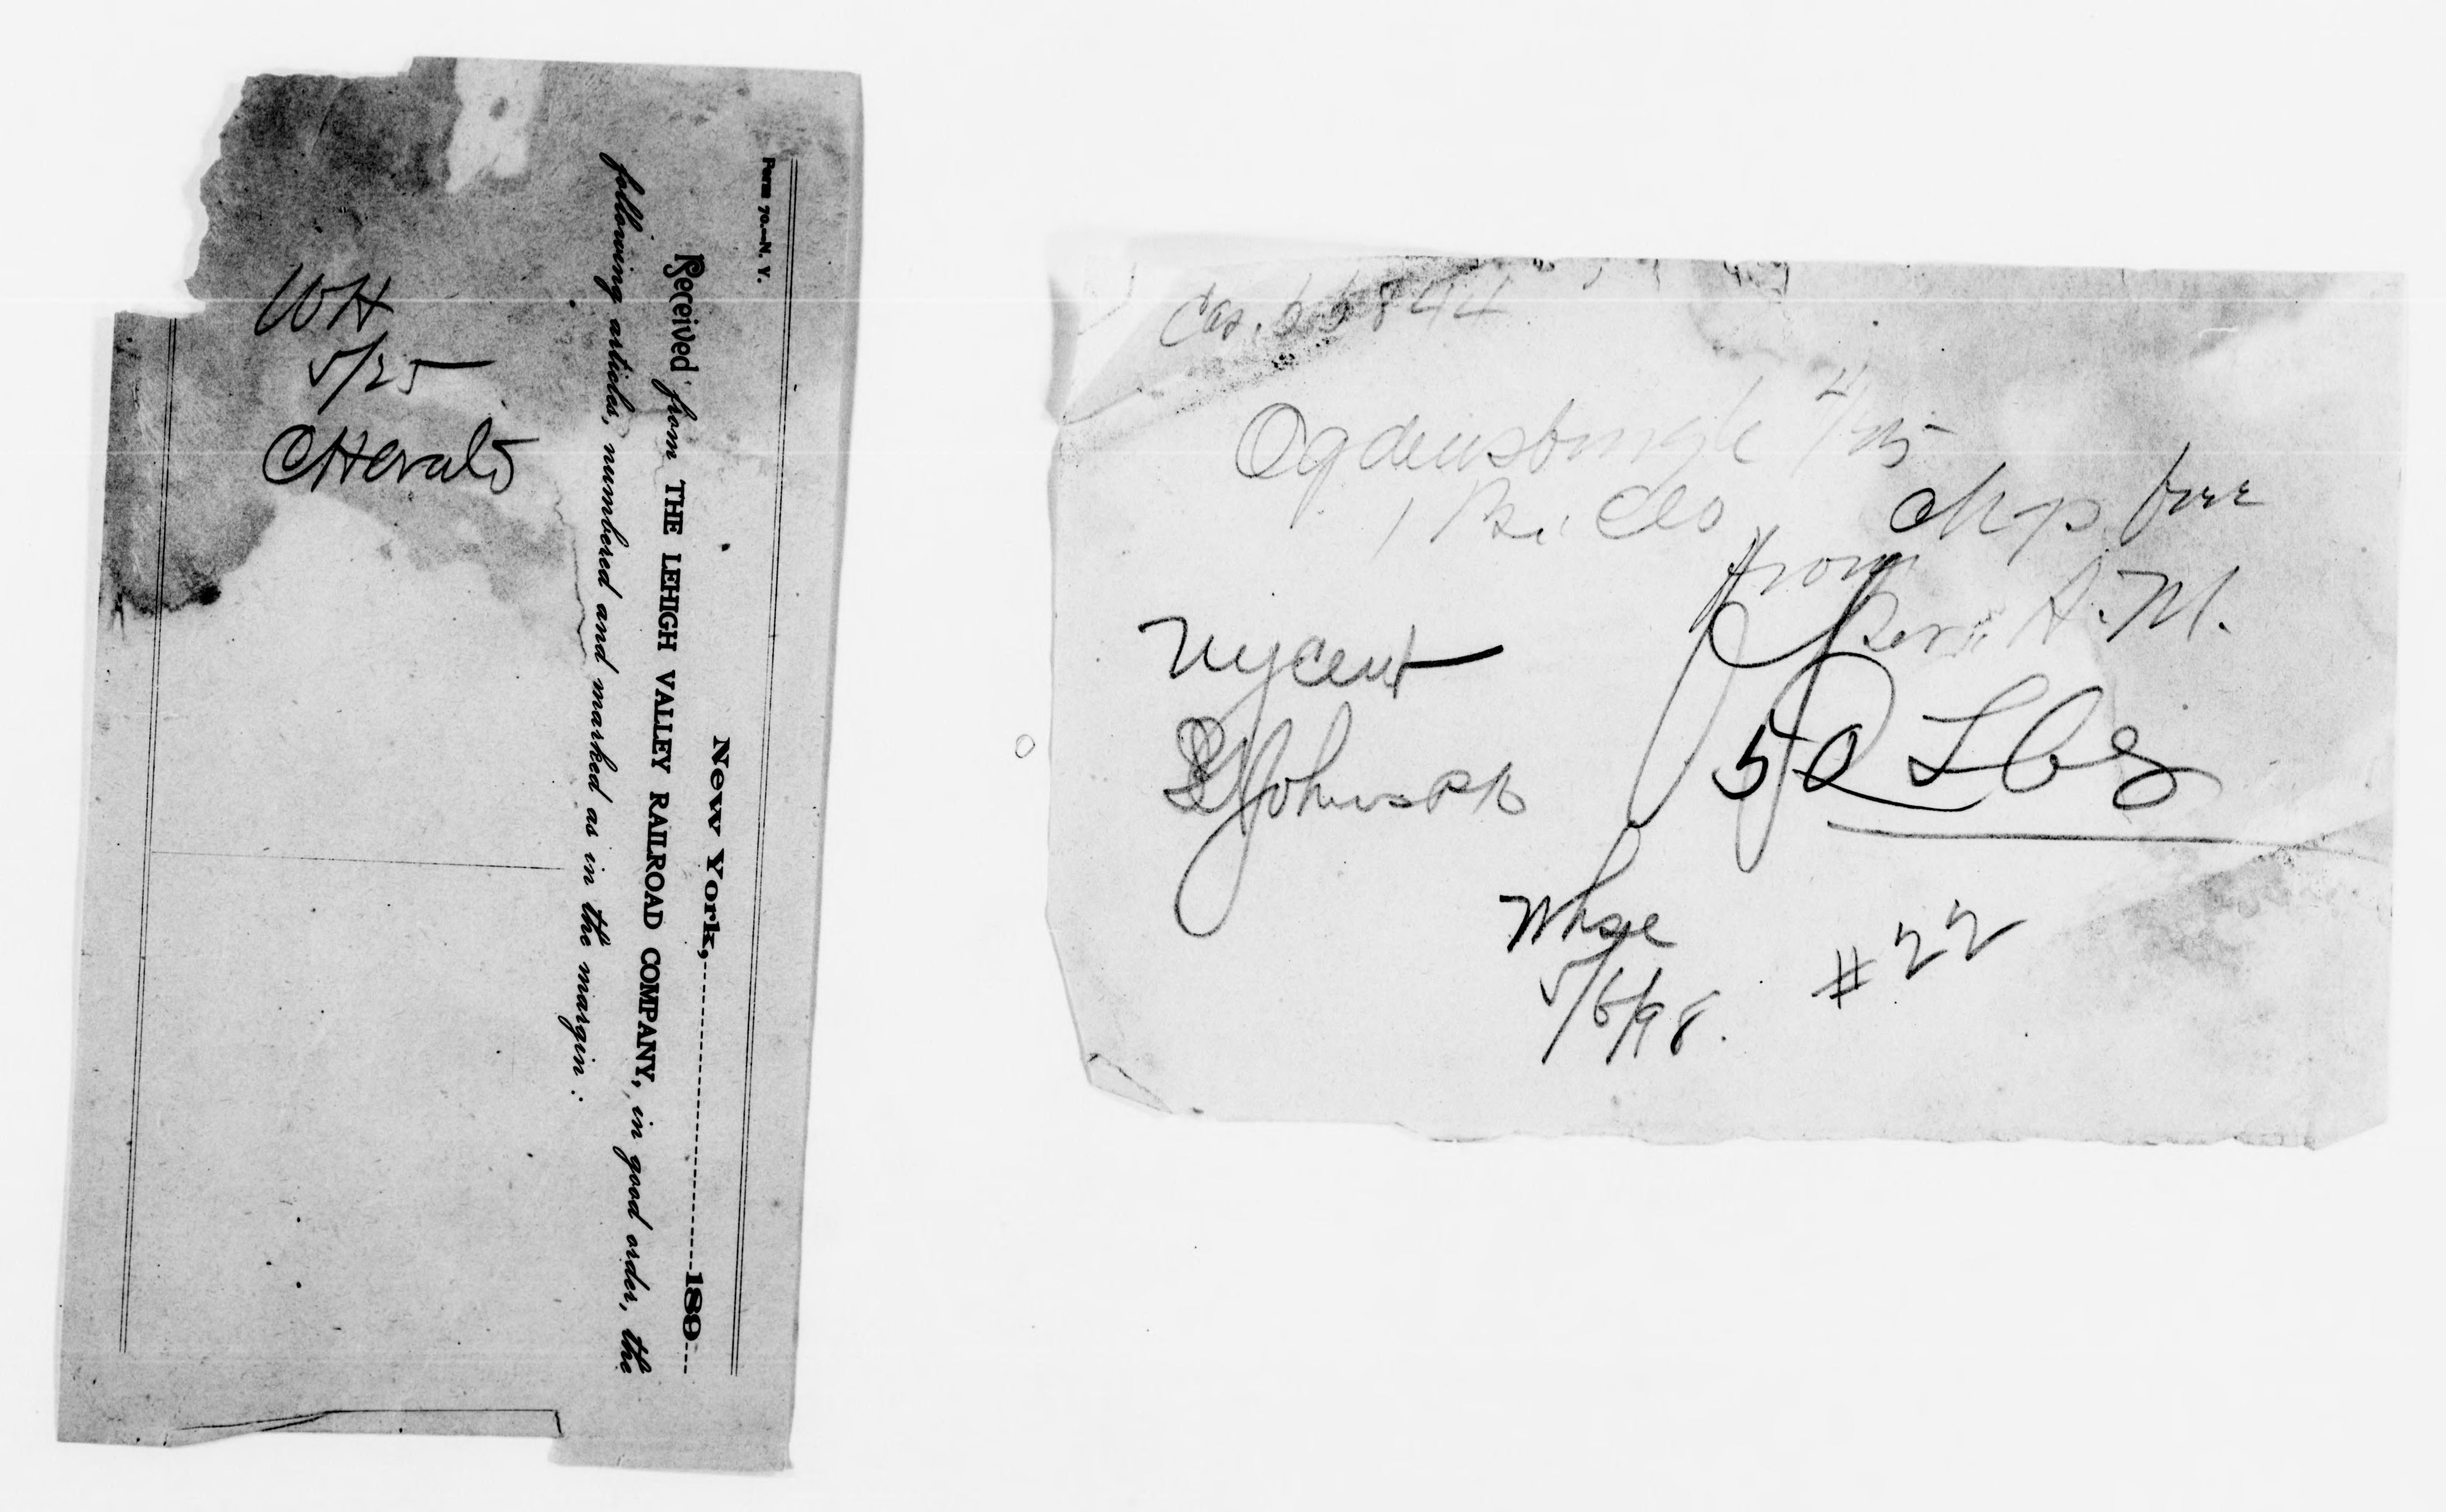 Form 70.—N. Y.
New York, 189
Received from THE LEHIGH VALLEY RAILROAD COMPANY, in good order, the
following articles, numbered and marked as in the margin:
WH
5/25
CHerald
Car. 65844
Ogdensburgh 4/25
1 Bx. Clo chgs free
from
A. M.
nycent
St Johns Pk
50 Lbs
Whse
5/6/98. #22